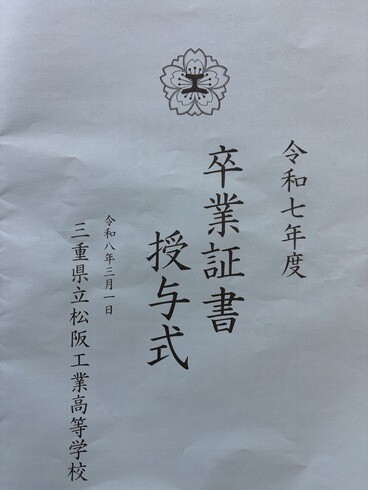 令和七年度
卒業証書
授与式
令和八年三月一日
三重県立松阪工業高等学校